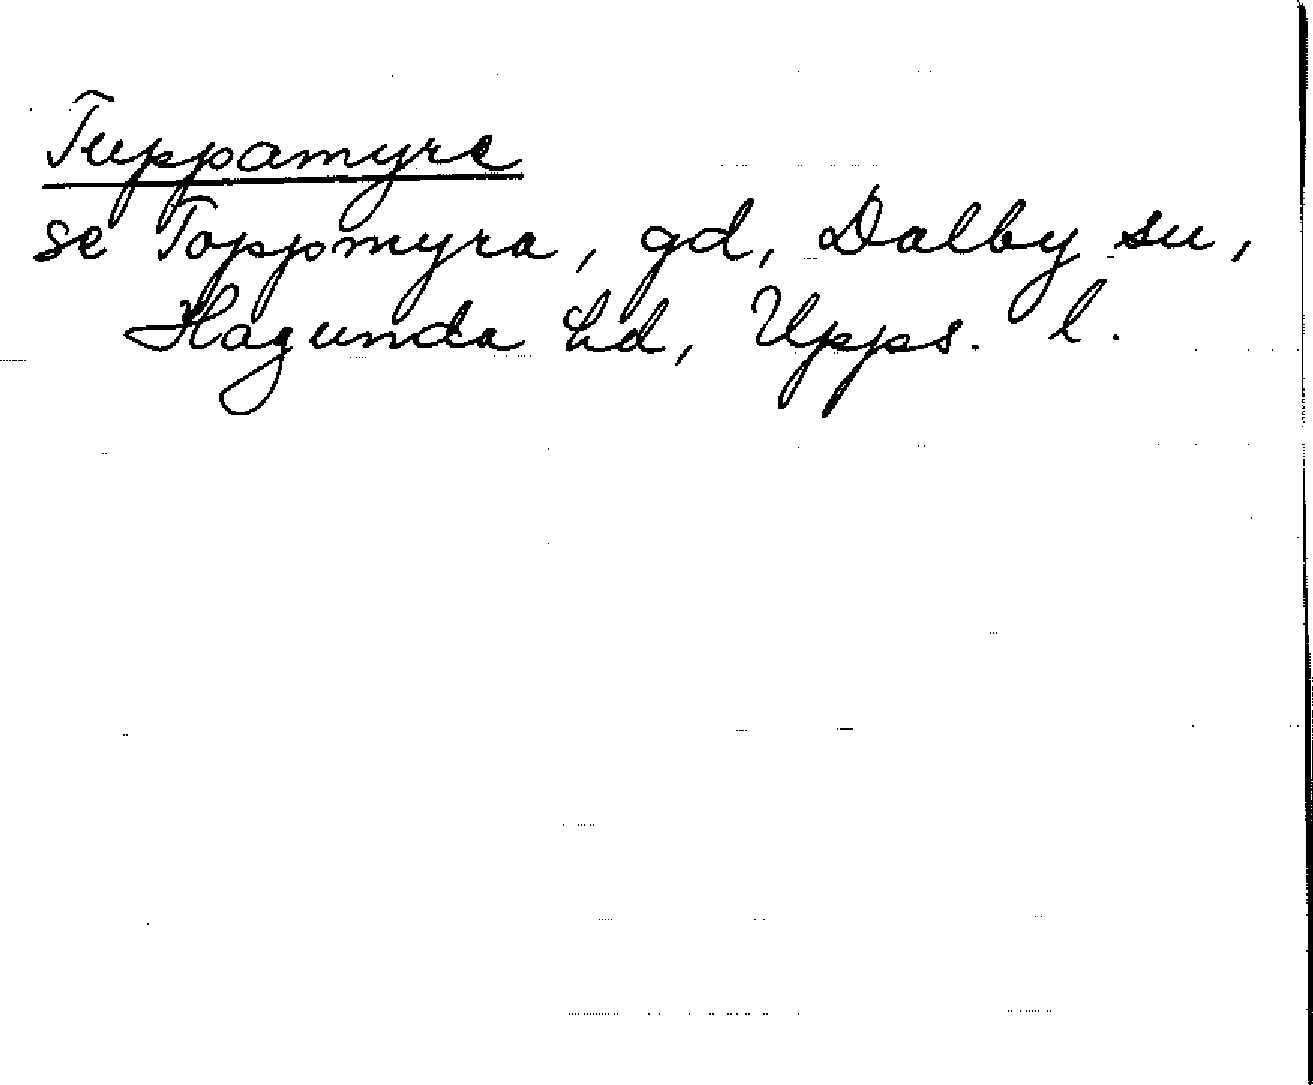 Tuppamyre
se Toppmyra, gd, Dalby sn,
Hagunda hd, Upps. l.